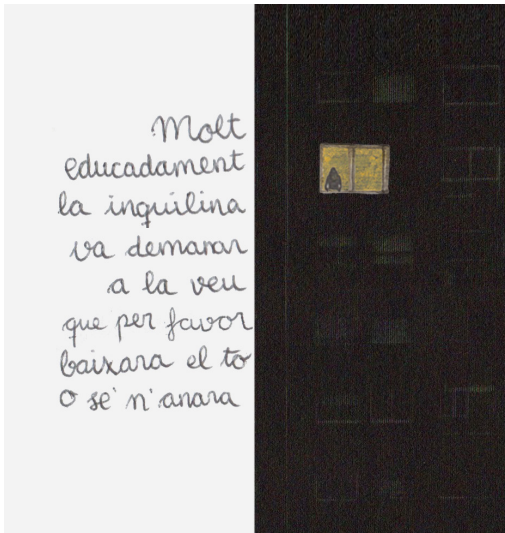 Molt
educadament
la inquilina
va demanar
a la veu
que per favor
baixara el to
O se' n'anara